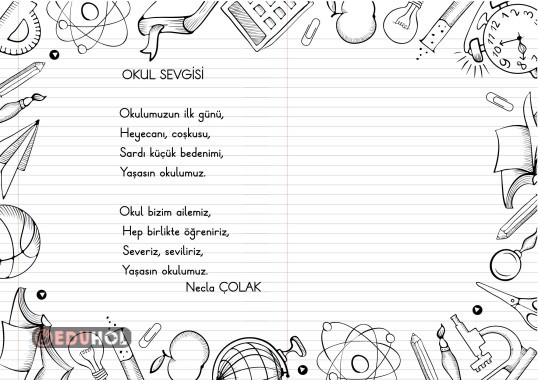 OKUL SEVGİSİ
Okulumuzun ilk günü,
Heyecanı, coşkusu,
Sardı küçük bedenimi,
Yaşasın okulumuz.
Okul bizim ailemiz,
Hep birlikte öğreniriz,
Severiz, seviliriz,
Yaşasın okulumuz.
Necla ÇOLAK
EDUHOL